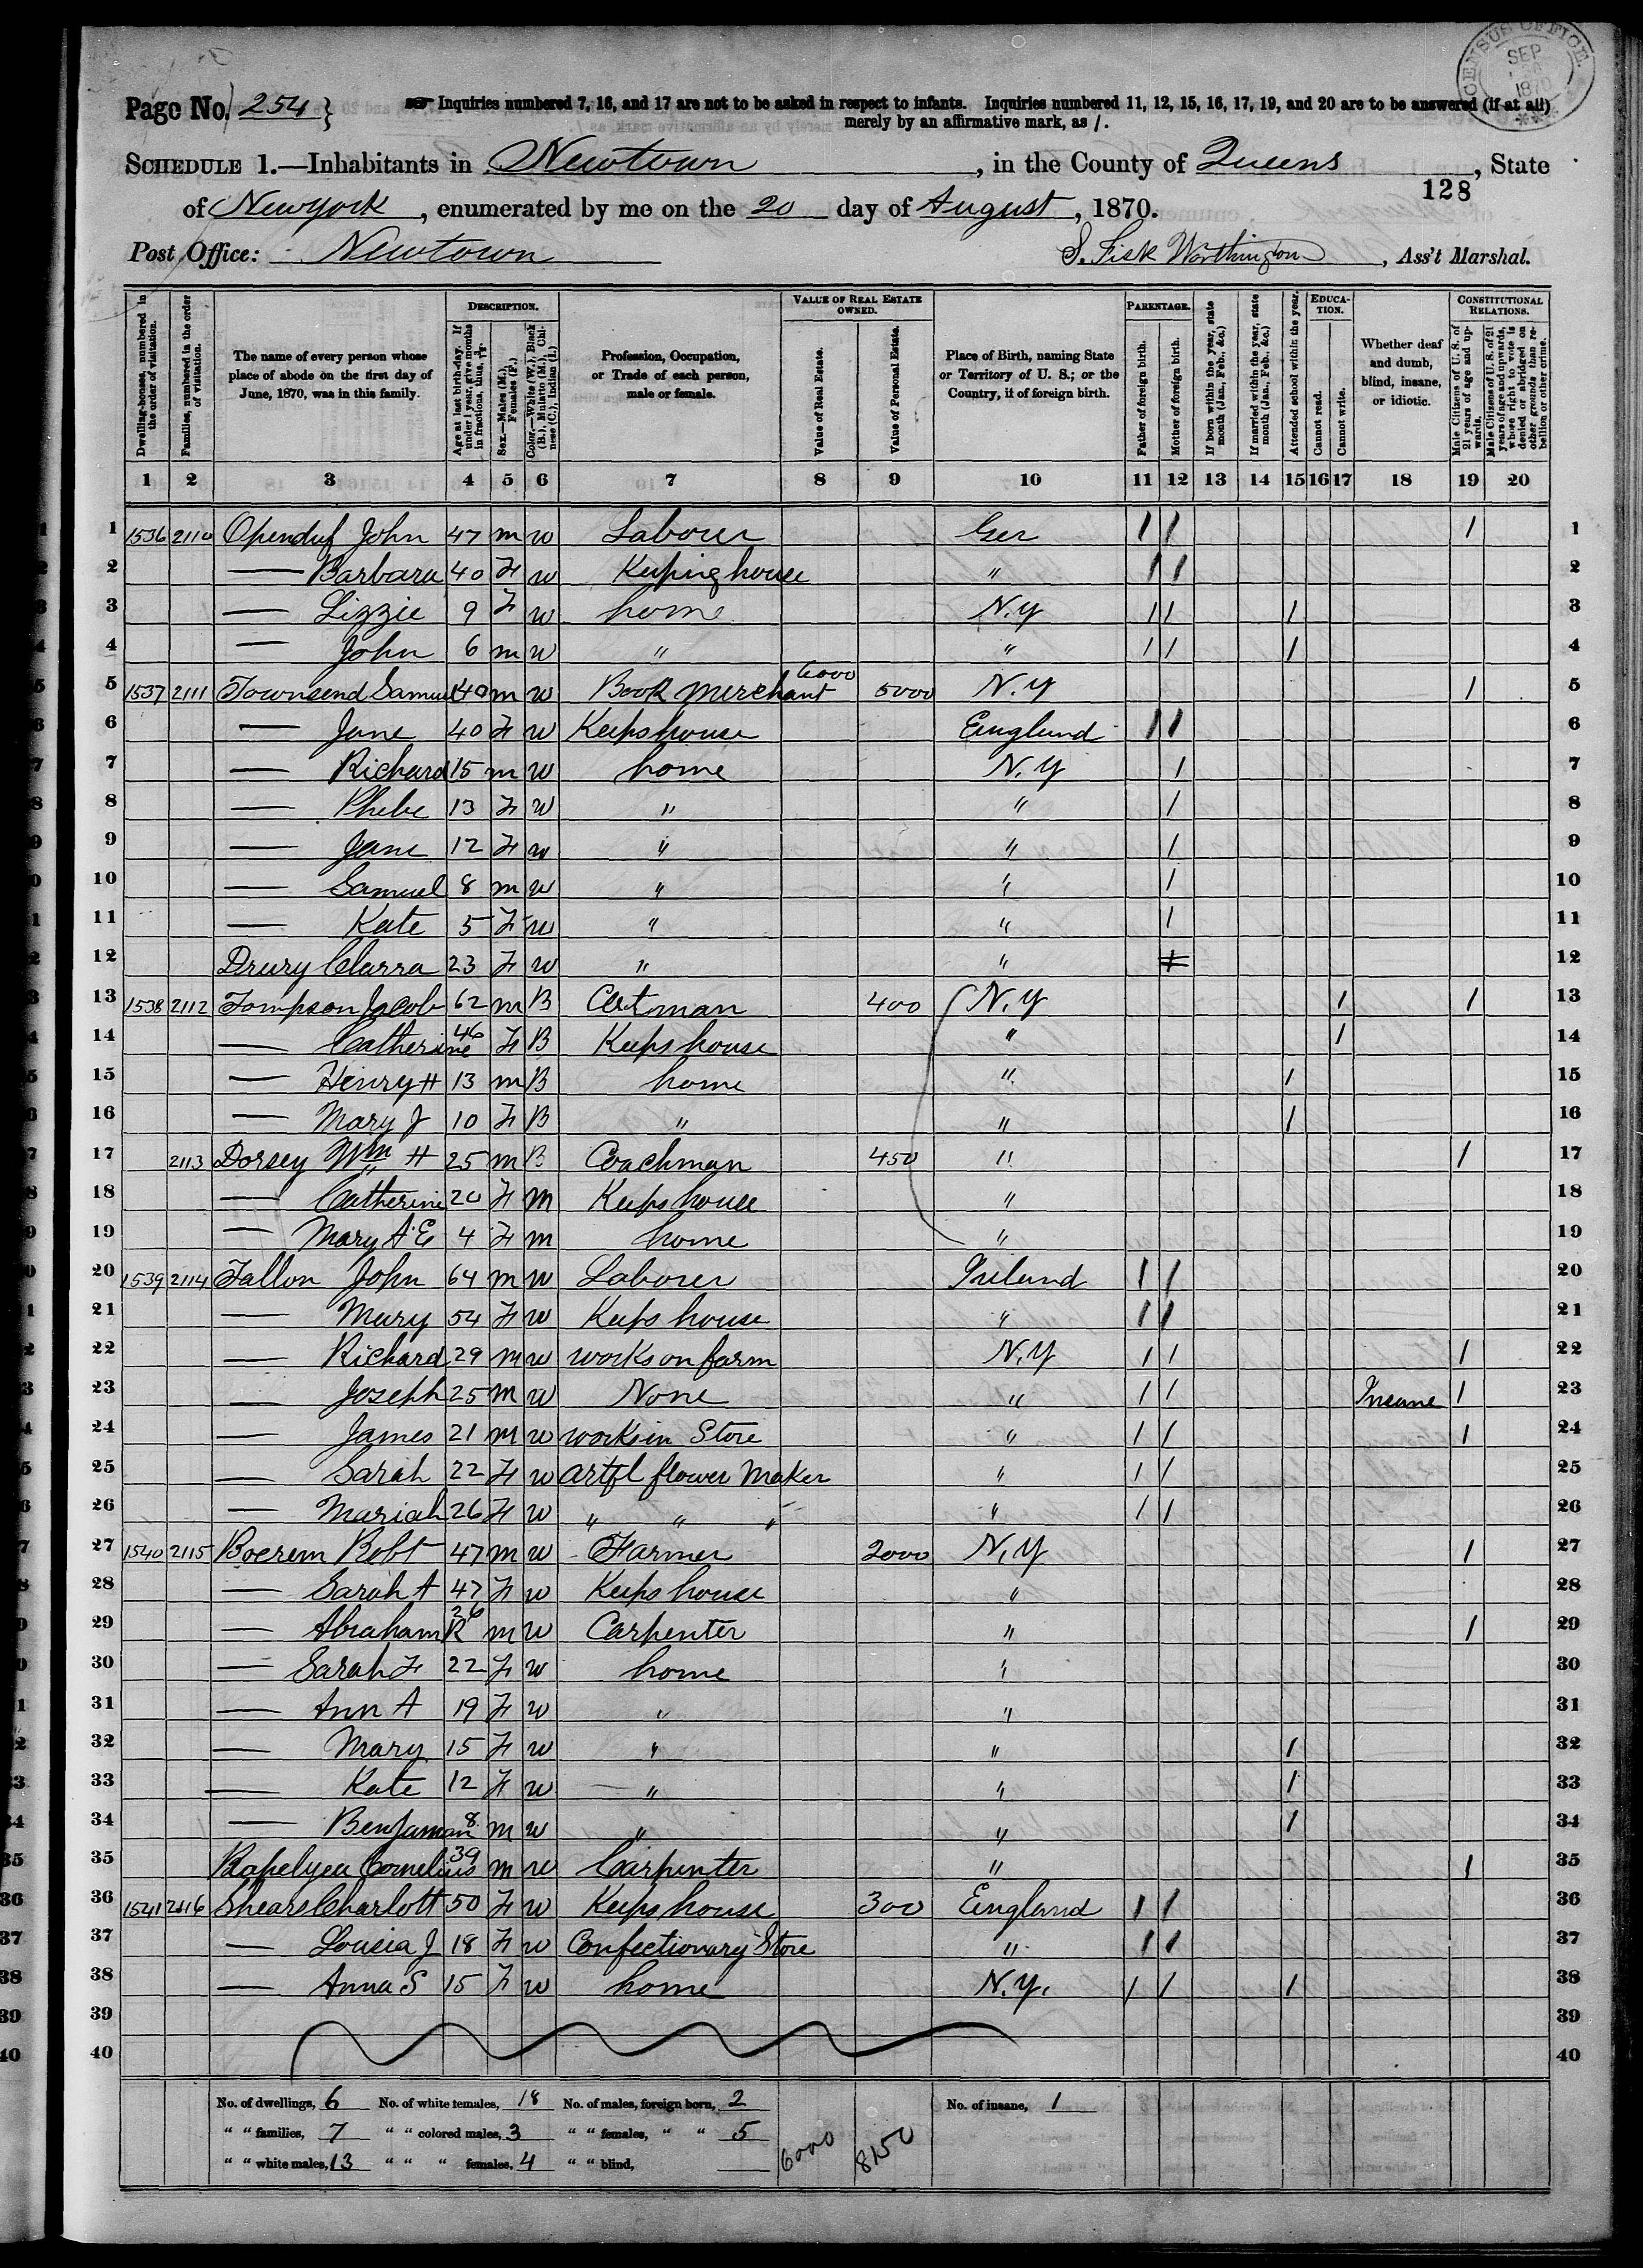 Page No. 254 }
Inquiries numbered 7, 16, and 17 are not to be asked in respect to infants. Inquiries numbered 11, 12, 15, 16, 17, 19, and 20 are to be answered (if at all)
merely by an affirmative mark, as /.
CENSUS OFFICE SEP 1870
SCHEDULE 1.—Inhabitants in Newtown, in the County of Queens, State
128
of Newyork, enumerated by me on the 20 day of August, 1870.
Post Office: Newtown S. Fisk Worthington, Ass't Marshal.
Dwelling-houses, numbered in the order of visitation.
Families, numbered in the order of visitation.
The name of every person whose place of abode on the first day of June, 1870, was in this family.
DESCRIPTION.
Age at last birth-day. If under 1 year, give months in fractions, thus, 3/12.
Sex.—Males (M.), Females (F.)
Color.—White (W.), Black (B.), Mulatto (M.), Chinese (C.), Indian (I.)
Profession, Occupation, or Trade of each person, male or female.
VALUE OF REAL ESTATE OWNED.
Value of Real Estate.
Value of Personal Estate.
Place of Birth, naming State or Territory of U. S.; or the Country, if of foreign birth.
PARENTAGE.
Father of foreign birth.
Mother of foreign birth.
If born within the year, state month (Jan., Feb., &c.)
If married within the year, state month (Jan., Feb., &c.)
Attended school within the year.
EDUCATION.
Cannot read.
Cannot write.
Whether deaf and dumb, blind, insane, or idiotic.
CONSTITUTIONAL RELATIONS.
Male Citizens of U. S. of 21 years of age and upwards.
Male Citizens of U. S. of 21 years of age and upwards, whose right to vote is denied or abridged on other grounds than rebellion or other crime.
1 2 3 4 5 6 7 8 9 10 11 12 13 14 15 16 17 18 19 20
1 1536 2110 Openduf John 47 m w Laborer Ger / / / 1
2 — Barbara 40 F w Keeping house " / / 2
3 — Lizzie 9 F w home N.Y / / / 3
4 — John 6 m w " " / / / 4
5 1537 2111 Townsend Samuel 40 m w Book merchant 6000 5000 N.Y / 5
6 — Jane 40 F w Keeps house England / / 6
7 — Richard 15 m w home N.Y / 7
8 — Phebe 13 F w " " / 8
9 — Jane 12 F w " " / 9
10 — Samuel 8 m w " " / 10
11 — Kate 5 F w " " / 11
12 Drury Clarra 23 F w " " 12
13 1538 2112 Tompson Jacob 62 m B 400 N.Y / / 13
14 — Catherine 46 F B Keeps house " / 14
15 — Henry H 13 m B home " / 15
16 — Mary J 10 F B " " / 16
17 2113 Dorsey Wm H 25 m B Coachman 450 " / 17
18 — Catherine 20 F m Keeps house " 18
19 — Mary A E 4 F m home " 19
20 1539 2114 Fallon John 64 m w Laborer Ireland / / 20
21 — Mary 54 F w Keeps house " / / 21
22 — Richard 29 m w works on farm N.Y / / / 22
23 — Joseph 25 m w None " / / Insane / 23
24 — James 21 m w works in Store " / / / 24
25 — Sarah 22 F w artfl flower maker " / / 25
26 — Mariah 26 F w " " " " / / 26
27 1540 2115 Boerem Robt 47 m w Farmer 2000 N.Y / 27
28 — Sarah A 47 F w Keeps house " 28
29 — Abraham R 26 m w Carpenter " / 29
30 — Sarah F 22 F w home " 30
31 — Ann A 19 F w " " 31
32 — Mary 15 F w " " / 32
33 — Kate 12 F w " " / 33
34 — Benjaman 8 m w " " / 34
35 Rapelyea Cornelius 39 m w Carpenter " / 35
36 1541 2116 Shears Charlott 50 F w Keeps house 300 England / / 36
37 — Lousia J 18 F w Confectionary Store " / / 37
38 — Anna S 15 F w home N.Y. / / / 38
39 39
40 40
No. of dwellings, 6 No. of white females, 18 No. of males, foreign born, 2 No. of insane, 1
" " families, 7 " " colored males, 3 " " females, " " 5 6000 8150
" " white males, 13 " " " females, 4 " " blind,